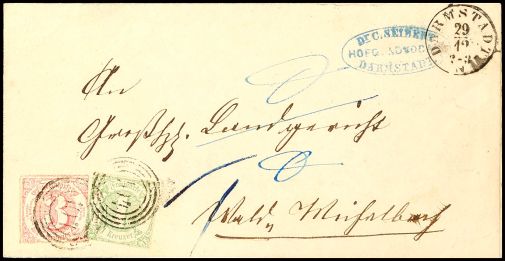 Dr C. SEIBERT
HOFG. ADVOC
DARMSTADT
DARMSTADT
29
12
An
Großhzl. Landgericht
Wald Michelbach
Kreuzer